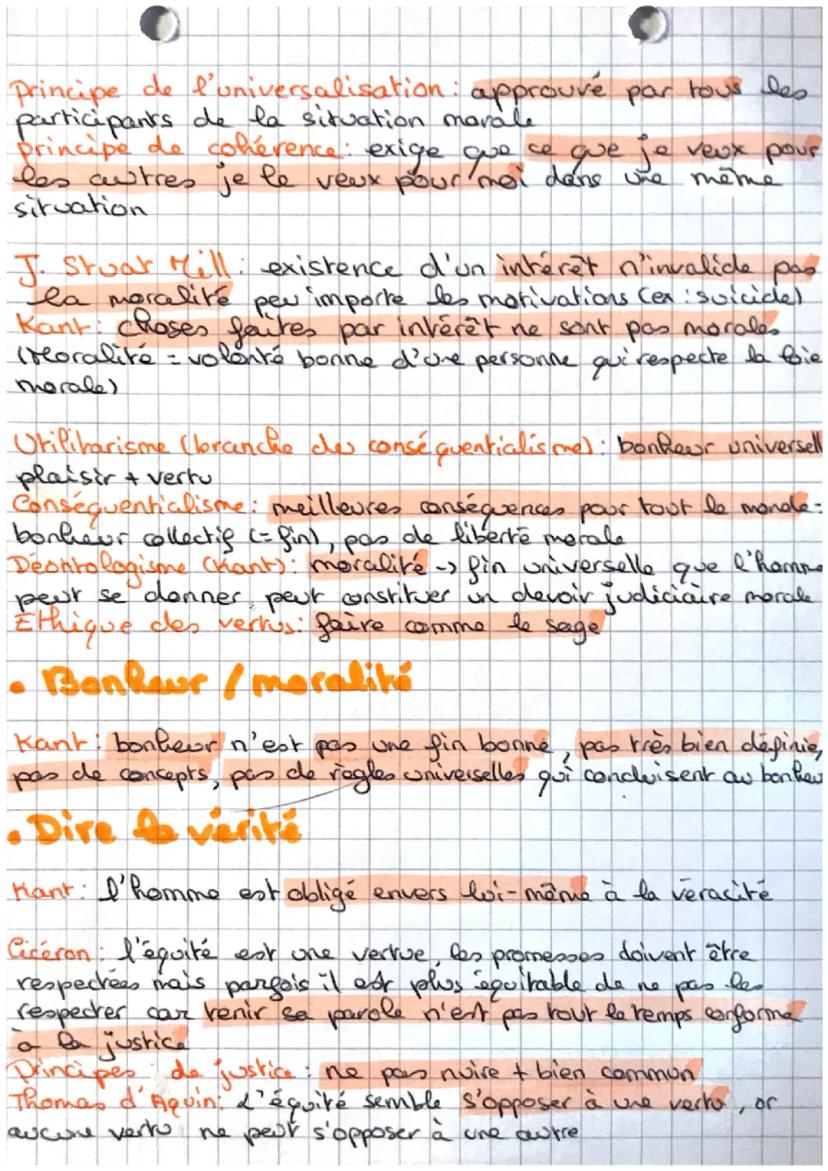 principe de l'universalisation : approuvé par tous les
participants de la situation morale
principe de cohérence : exige que ce que je veux pour
les autres je le veux pour moi dans une même
situation
J. Stuar Mill : existence d'un intérêt n'invalide pas
la moralité peu importe les motivations (ex : suicide)
Kant : choses faites par intérêt ne sont pas morales
(Moralité = volonté bonne d'une personne qui respecte la loie
morale)
Utilitarisme (branche du conséquentialisme) : bonheur universell
plaisir + vertu
Conséquentialisme : meilleures conséquences pour tout le monde =
bonheur collectif (= fin), pas de liberté morale
Déontologisme (Kant) : moralité -> fin universelle que l'homme
peut se donner, peut constituer un devoir judiciaire morale
Ethique des vertus : faire comme le sage
• Bonheur / moralité
Kant : bonheur n'est pas une fin bonne, pas très bien définie,
pas de concepts, pas de règles universelles qui conduisent au bonheu
• Dire la vérité
Kant : l'homme est obligé envers lui-même à la véracité
Cicéron : l'équité est une vertue, les promesses doivent être
respectées mais parfois il est plus équitable de ne pas les
respecter car tenir sa parole n'est pas tout le temps conforme
à la justice
Principes de justice : ne pas nuire + bien commun
Thomas d'Aquin : L'équité semble s'opposer à une vertu, or
aucune vertu ne peut s'opposer à une autre